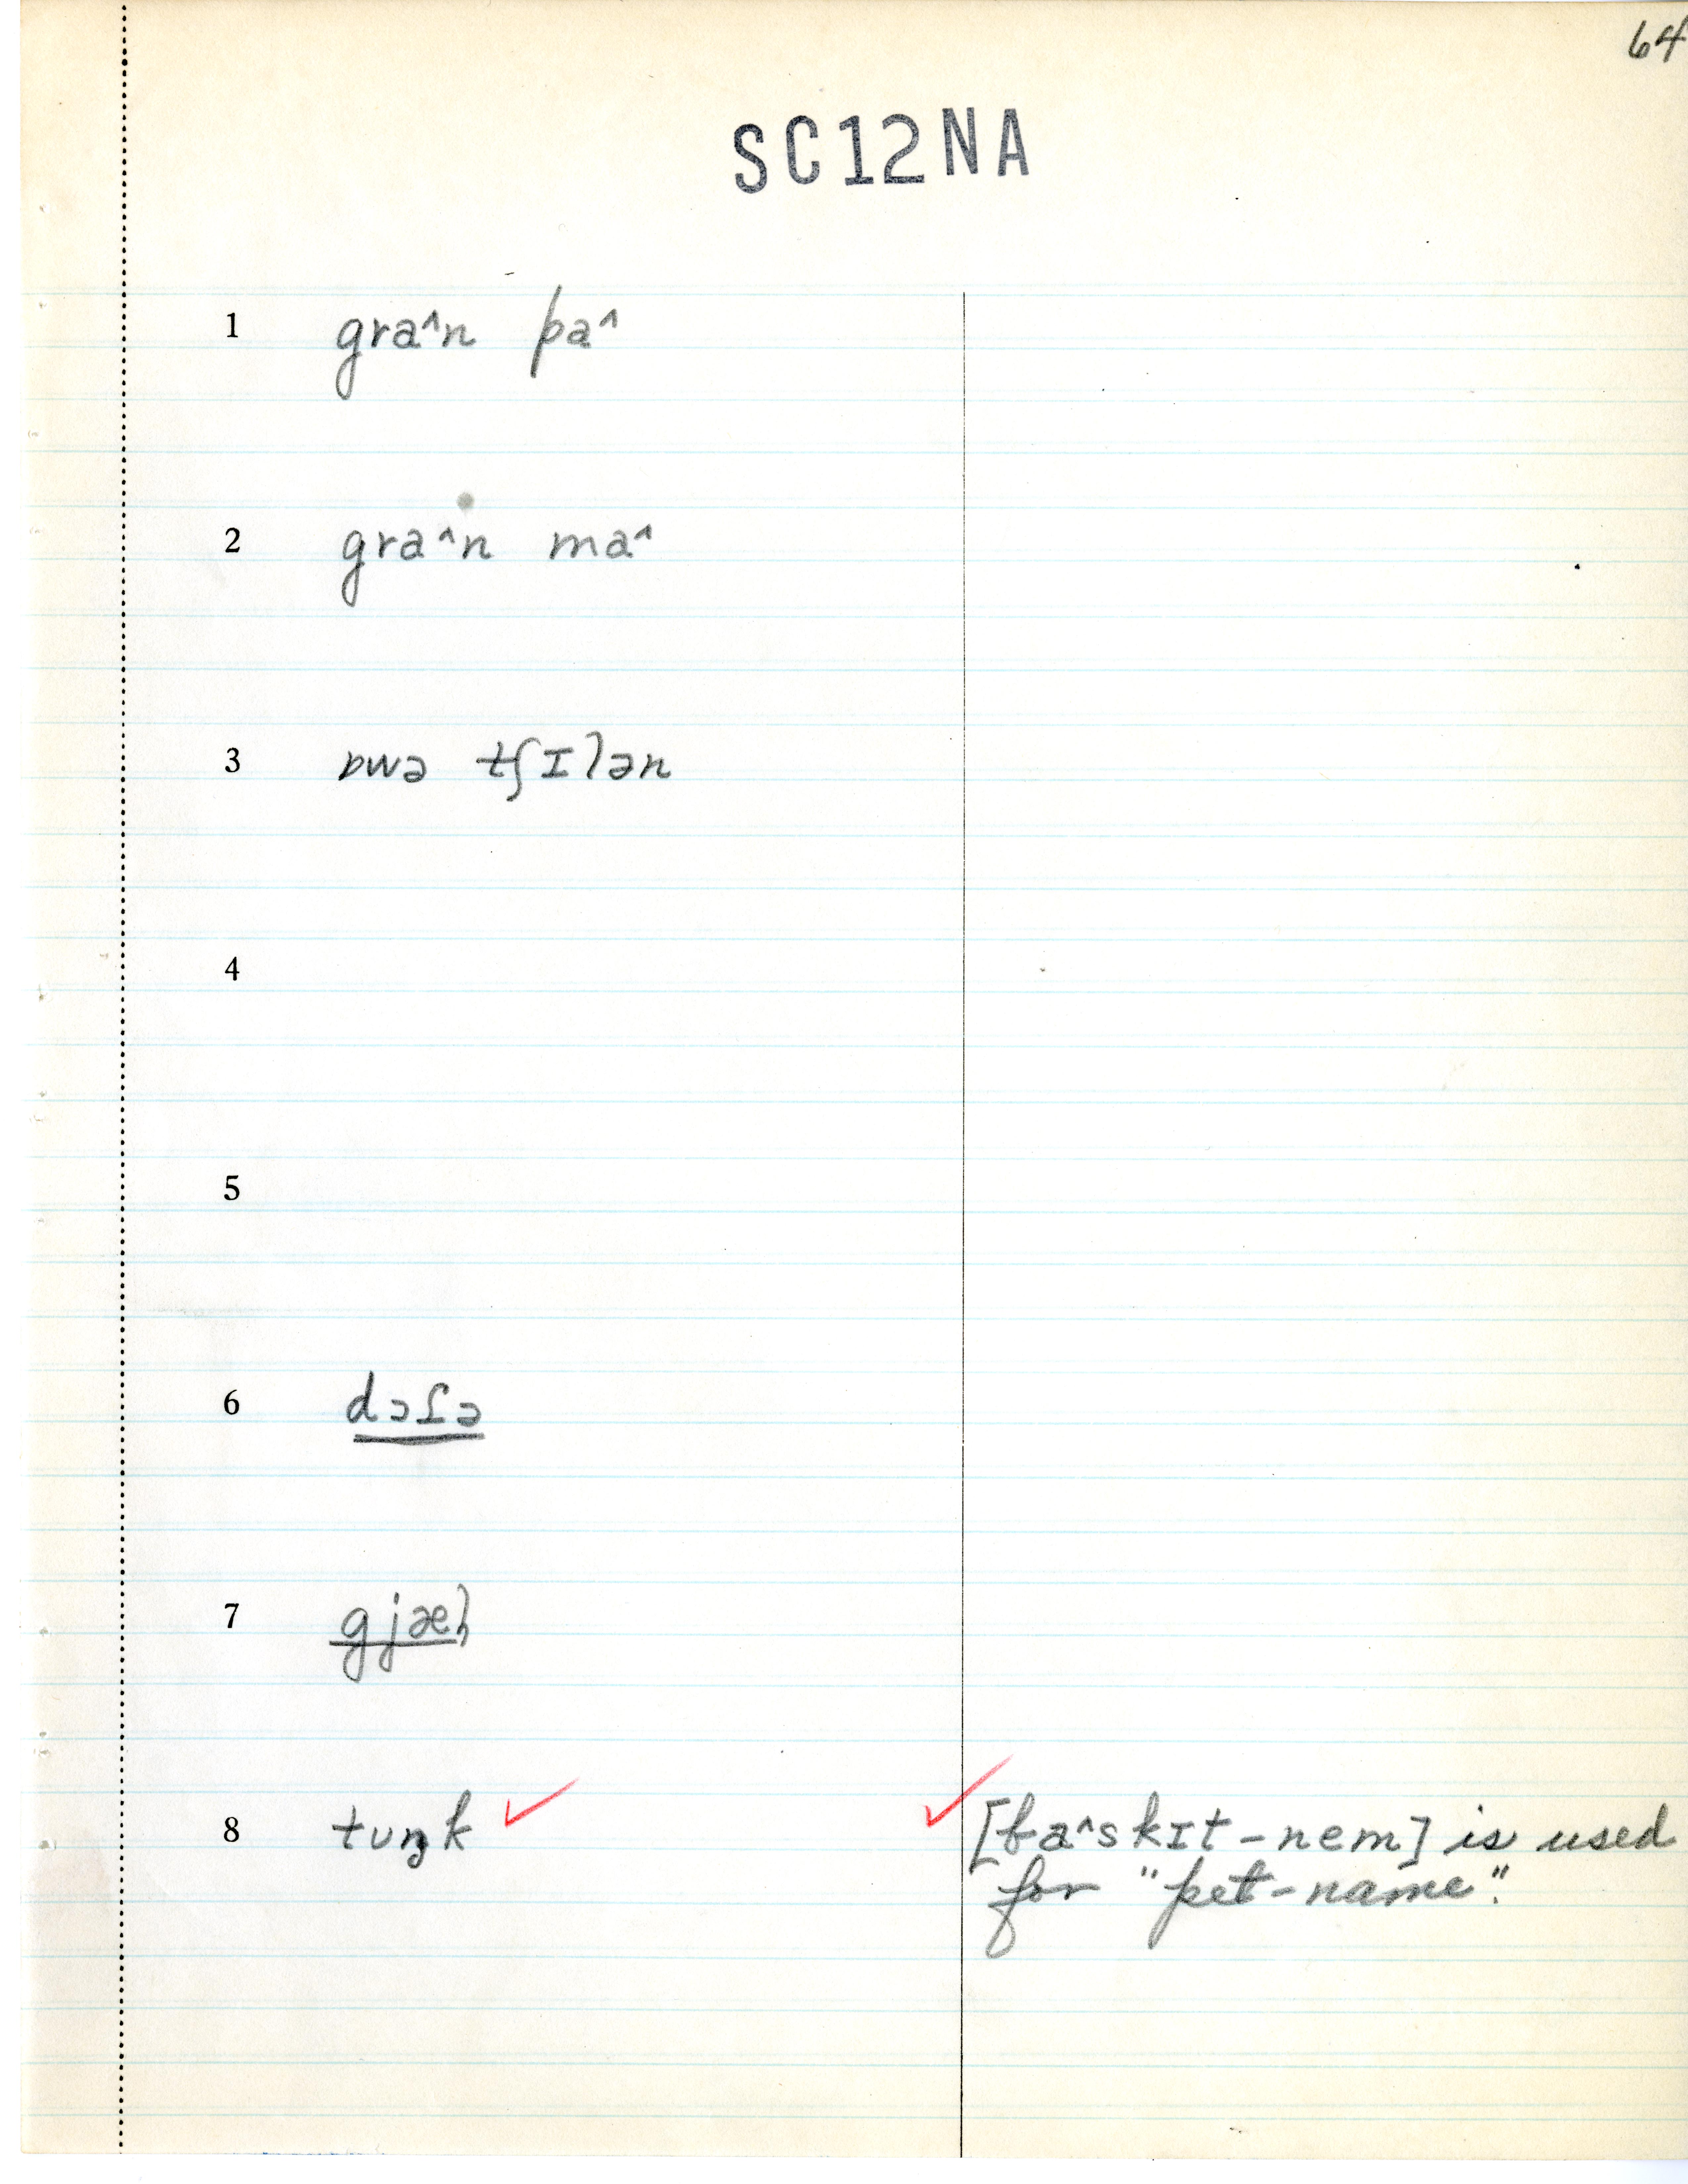 64
SC12NA
1 graˆn paˆ
2 graˆn maˆ
3 ɒwə tʃɪlən
4
5
6 dɔɾə
7 gjæl
8 tuŋk ✓ ✓ [baˆskɪt-nem] is used
for "pet-name".